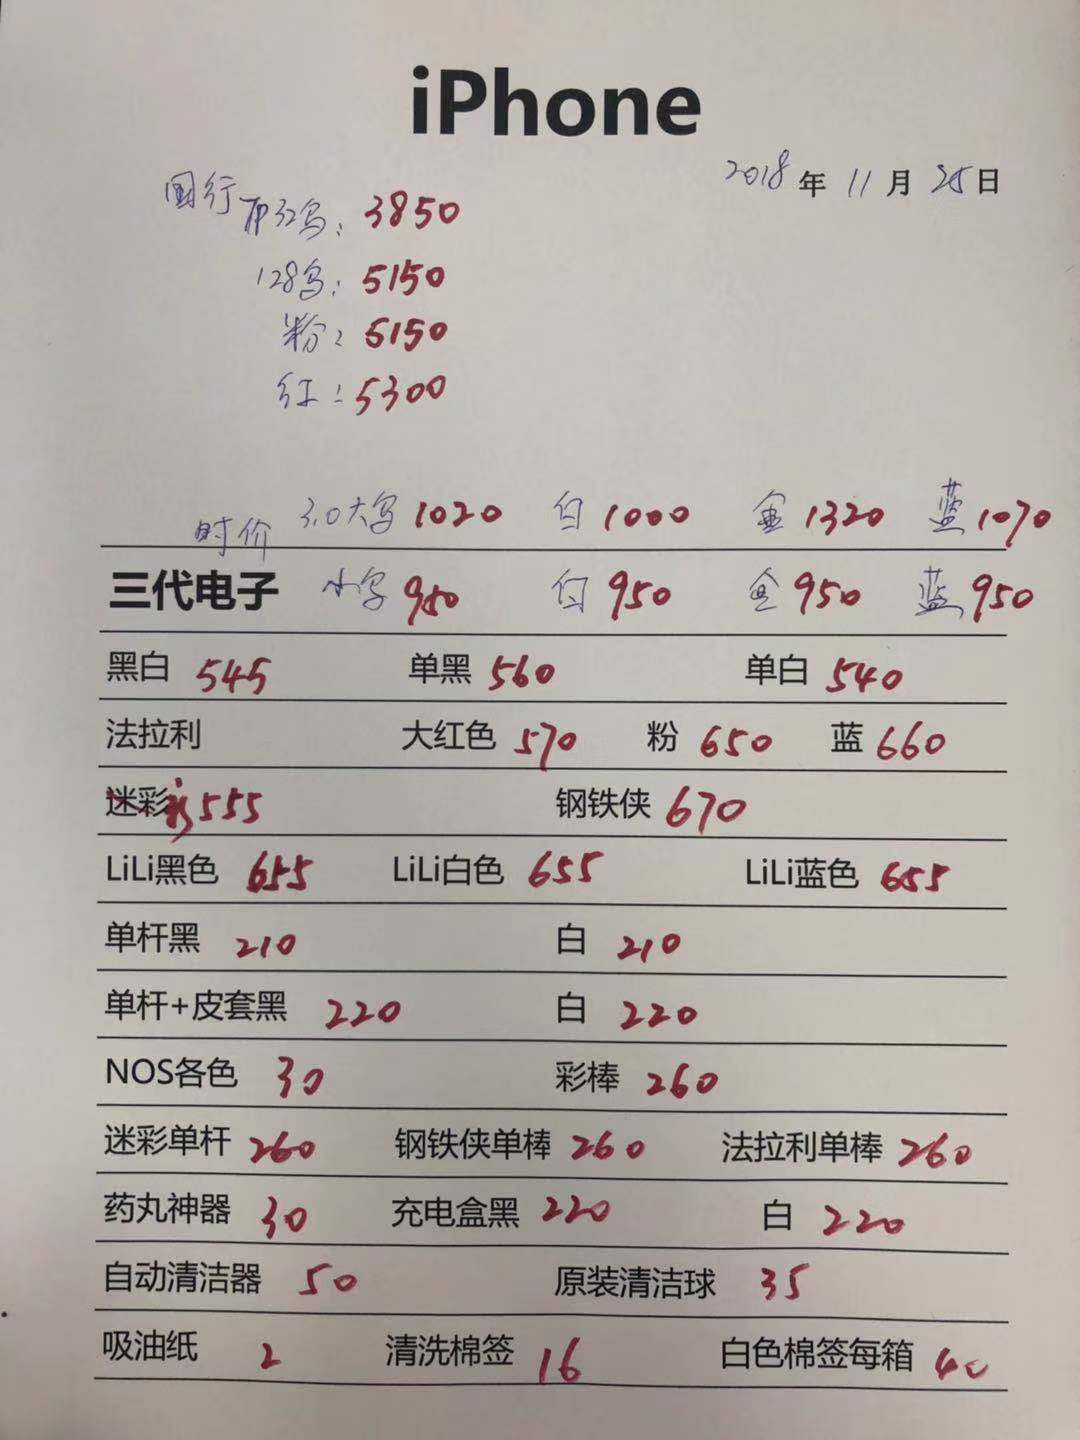 iPhone
2018年11月25日
国行 7P32乌: 3850
128乌: 5150
粉: 5150
红: 5300
时价 3.0大乌 1020 白 1000 金 1320 蓝 1070
三代电子 小乌 950 白 950 金 950 蓝 950
黑白 545 单黑 560 单白 540
法拉利 大红色 570 粉 650 蓝 660
迷彩 555 钢铁侠 670
LiLi黑色 655 LiLi白色 655 LiLi蓝色 655
单杆黑 210 白 210
单杆+皮套黑 220 白 220
NOS各色 30 彩棒 260
迷彩单杆 260 钢铁侠单棒 260 法拉利单棒 260
药丸神器 30 充电盒黑 220 白 220
自动清洁器 50 原装清洁球 35
吸油纸 2 清洗棉签 16 白色棉签每箱 40